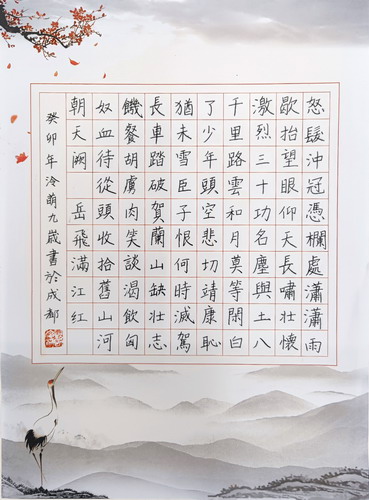 怒髮沖冠憑欄處瀟瀟雨
歇抬望眼仰天長嘯壯懷
激烈三十功名塵與土八
千里路雲和月莫等閑白
了少年頭空悲切靖康恥
猶未雪臣子恨何時滅駕
長車踏破賀蘭山缺壯志
饑餐胡虜肉笑談渴飲匈
奴血待從頭收拾舊山河
朝天闕 岳飛滿江紅
癸卯年泠萌九歲書於成都